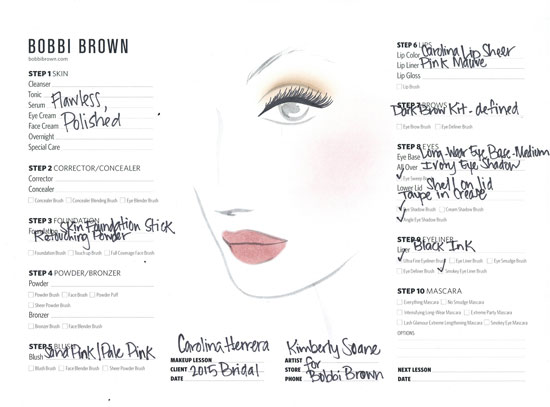 BOBBI BROWN
bobbibrown.com
STEP 1 SKIN
Cleanser
Tonic
Serum Flawless,
Eye Cream Polished
Face Cream
Overnight
Special Care
STEP 2 CORRECTOR/CONCEALER
Corrector
Concealer
Concealer Brush Concealer Blending Brush Eye Blender Brush
STEP 3 FOUNDATION
Foundation Skin Foundation Stick
Retouching Powder
Foundation Brush Touch up Brush Full Coverage Face Brush
STEP 4 POWDER/BRONZER
Powder
Powder Brush Face Brush Powder Puff
Sheer Powder Brush
Bronzer
Bronzer Brush Face Blender Brush
STEP 5 BLUSH
Blush Sand Pink/Pale Pink
Blush Brush Face Blender Brush Sheer Powder Brush
Carolina Herrera
MAKEUP LESSON
CLIENT 2015 Bridal
DATE
Kimberly Soane
ARTIST for
STORE Bobbi Brown
PHONE
STEP 6 LIPS
Lip Color Carolina Lip Sheer
Lip Liner Pink Mauve
Lip Gloss
Lip Brush
STEP 7 BROWS
Dark Brow Kit - defined
Eye Brow Brush Eye Definer Brush
STEP 8 EYES
Eye Base Long-Wear Eye Base-Medium
All Over Ivory Eye Shadow
Eye Sweep Brush
Lower Lid Shell on lid
Taupe in Crease
Eye Shadow Brush Cream Shadow Brush
Angle Eye Shadow Brush
STEP 9 EYELINER
Liner Black Ink
Ultra Fine Eyeliner Brush Eye Liner Brush Eye Smudge Brush
Eye Definer Brush Smokey Eye Liner Brush
STEP 10 MASCARA
Everything Mascara No Smudge Mascara
Intensifying Long-Wear Mascara Extreme Party Mascara
Lash Glamour Extreme Lengthening Mascara Smokey Eye Mascara
OPTIONS
NEXT LESSON
DATE